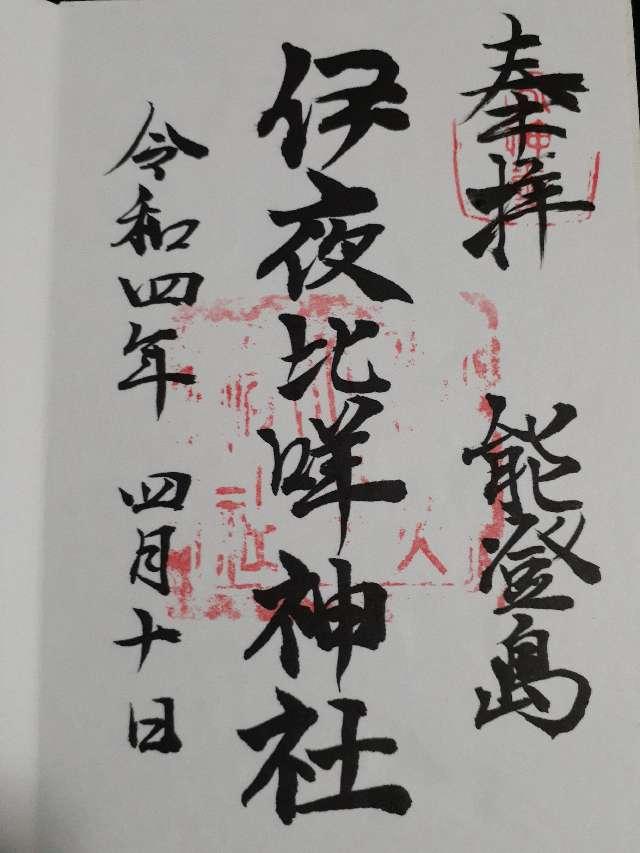 奉拝 能登島
伊夜比咩神社
令和四年 四月十日